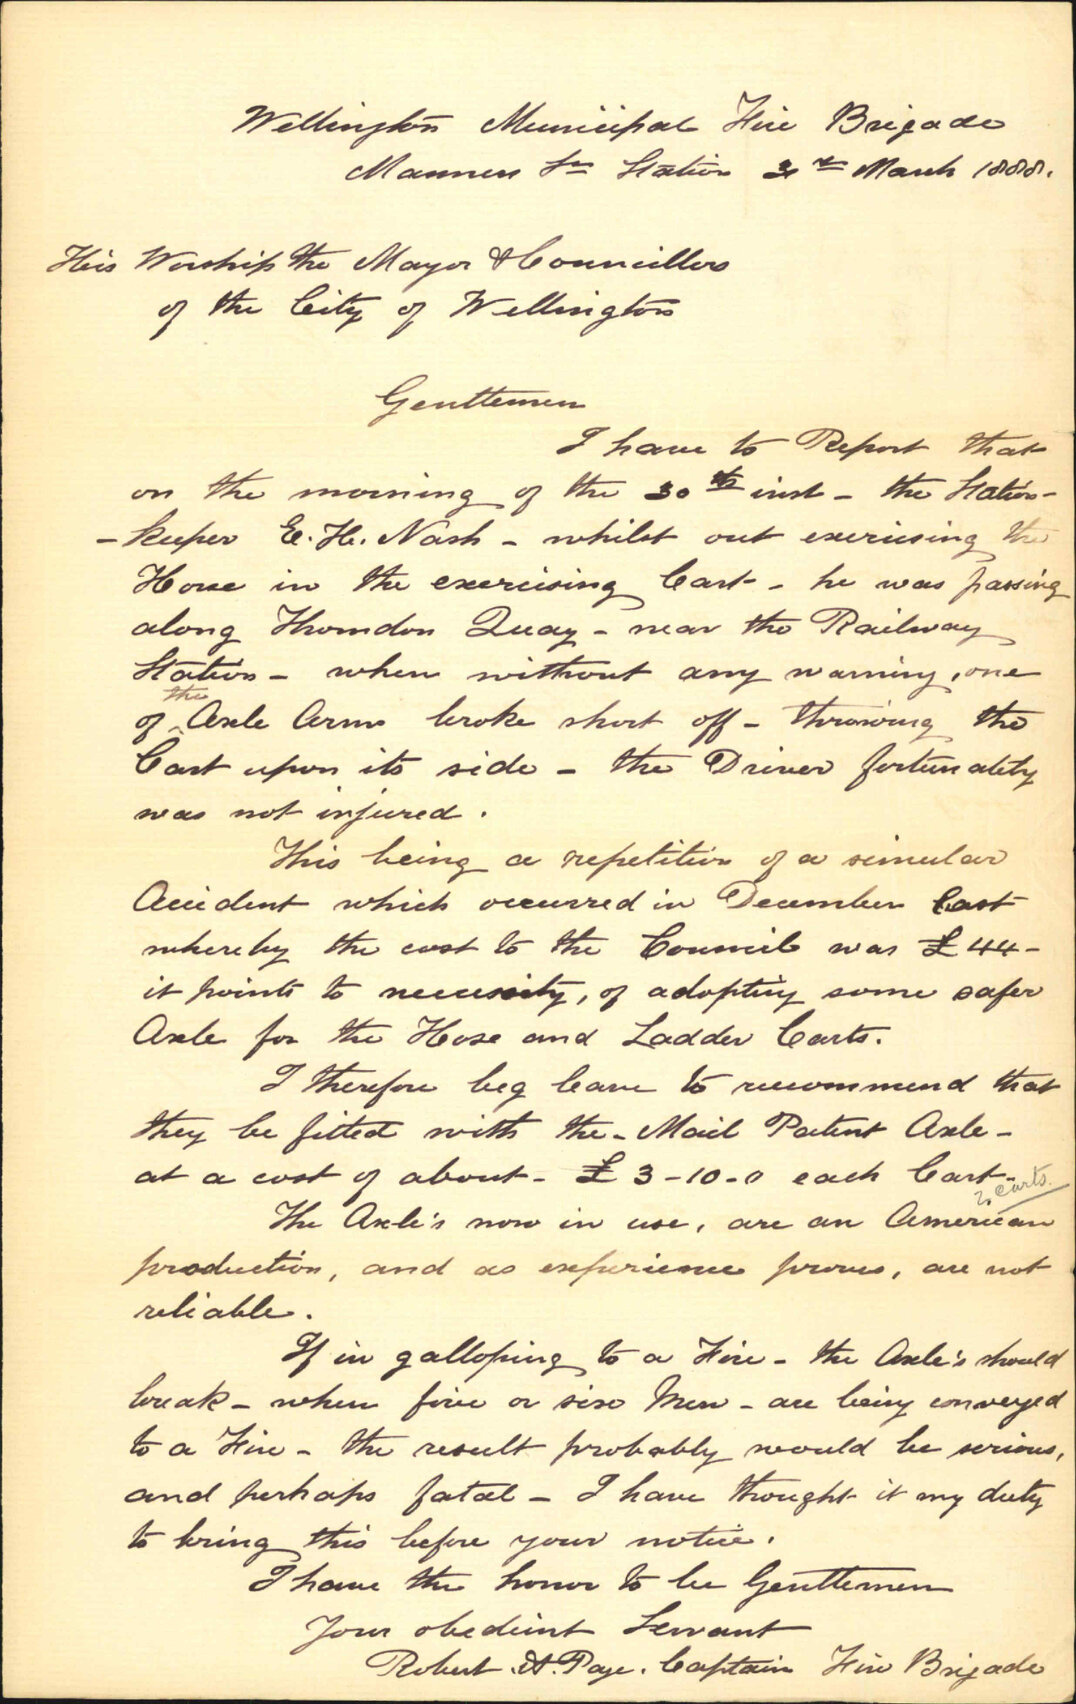 Wellington Municipal Fire Brigade
Manners St Station 31st March 1888.
His Worship the Mayor & Councillors
of the City of Wellington
Gentlemen
I have to Report that
on the morning of the 30th inst - the Station-
-keeper E. H. Nash - whilst out exercising the
Horse in the exercising Cart - he was passing
along Thorndon Quay - near the Railway
Station - when without any warning, one
of the Axle Arms broke short off - throwing the
Cart upon its side - the Driver fortunately
was not injured.
This being a repetition of a simular
Accident which occurred in December last
whereby the cost to the Council was £44 -
it points to necessity, of adopting some safer
Axle for the Hose and Ladder Carts.
I therefore beg leave to recommend that
they be fitted with the - Mail Patent Axle -
at a cost of about - £3-10-0 each Cart -
2 Carts.
The Axle's now in use, are an American
production, and as experience proves, are not
reliable.
If in galloping to a Fire - the Axle's should
break - when five or six Men - are being conveyed
to a Fire - the result probably would be serious,
and perhaps fatal - I have thought it my duty
to bring this before your notice.
I have the honor to be Gentlemen
Your obedient Servant
Robert A. Page. Captain Fire Brigade